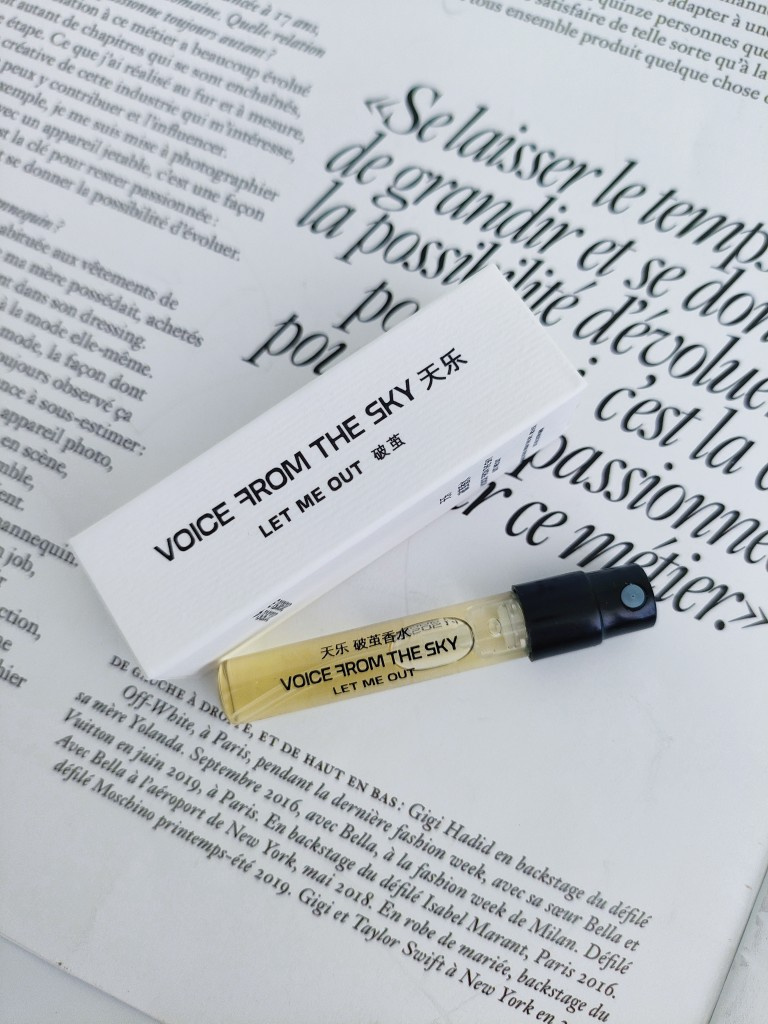 ée à 17 ans,
onne toujours autant? Quelle relation
autant de chapitres qui se sont enchaînés,
étape. Ce que j'ai réalisé au fur et à mesure,
créative de cette industrie qui m'intéresse,
peux y contribuer et l'influencer.
exemple, je me suis mise à photographier
avec un appareil jetable, c'est une façon
est la clé pour rester passionnée :
se donner la possibilité d'évoluer.
mannequin ?
habituée aux vêtements de
ma mère possédait, achetés
dans son dressing.
à la mode elle-même.
mode, la façon dont
toujours observé ça
à sous-estimer:
appareil photo,
en scène,
mannequin
job,
quinze personnes que
satisfaire de telle sorte qu'à la
tous ensemble produit quelque chose
«Se laisser le temps
de grandir et se don
la possibilité d'évolue
c'est la
passionnée
ce métier.»
VOICE FROM THE SKY 天乐
LET ME OUT 破茧
天乐 破茧香水
VOICE FROM THE SKY
LET ME OUT
DE GAUCHE À DROITE, ET DE HAUT EN BAS : Gigi Hadid en backstage du défilé
Off-White, à Paris, pendant la dernière fashion week, avec sa sœur Bella et
sa mère Yolanda. Septembre 2016, avec Bella, à la fashion week de Milan. Défilé
Vuitton en juin 2019, à Paris. En backstage du défilé Isabel Marant, Paris 2016.
Avec Bella à l'aéroport de New York, mai 2018. En robe de mariée, backstage du
défilé Moschino printemps-été 2019. Gigi et Taylor Swift à New York en